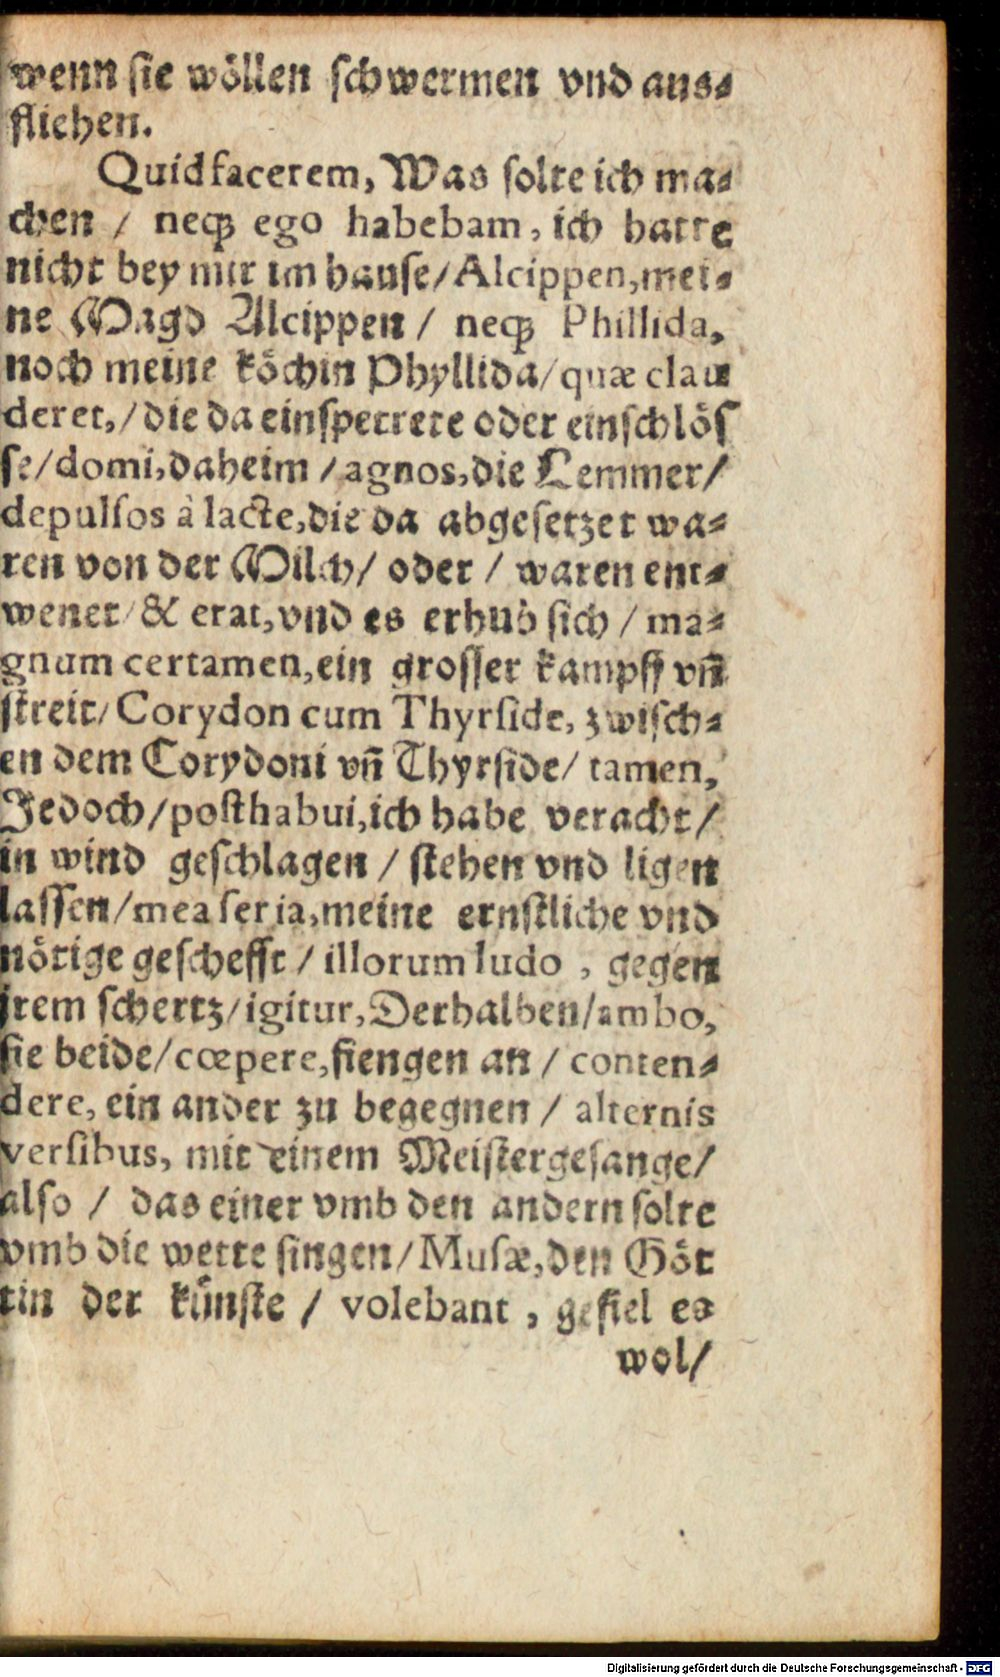 wenn ſie wöllen ſchwermen vnd aus⸗
fliehen.
Quid facerem, Was ſolte ich ma⸗
chen / neq́ꝫ ego habebam, ich hatte
nicht bey mir im hauſe/ Alcippen, mei⸗
ne Magd Alcippen / neq́ꝫ Phillida,
noch meine köchin Phyllida/ quæ clau
deret, / die da einſperrete oder einſchlöſ
ſe/ domi, daheim / agnos, die Lemmer/
depulſos à lacte, die da abgeſetzet wa⸗
ren von der Milch/ oder / waren ent⸗
wenet/ & erat, vnd es erhub ſich / ma⸗
gnum certamen, ein groſſer kampff vn̄
ſtreit/ Corydon cum Thyrſide, zwiſch⸗
en dem Corydoni vn̄ Thyrſide/ tamen,
Jedoch/ poſthabui, ich habe veracht/
in wind geſchlagen / ſtehen vnd ligen
laſſen/ mea ſeria, meine ernſtliche vnd
nötige geſchefft / illorum ludo , gegen
jrem ſchertz/ igitur, Derhalben/ ambo,
ſie beide/ cœpere, fiengen an / conten⸗
dere, ein ander zu begegnen / alternis
verſibus, mit einem Meiſtergeſange/
alſo / das einer vmb den andern ſolte
vmb die wette ſingen/ Muſæ, den Göt
tin der künſte / volebant , gefiel es
wol/
Digitalisierung gefördert durch die Deutsche Forschungsgemeinschaft - DFG